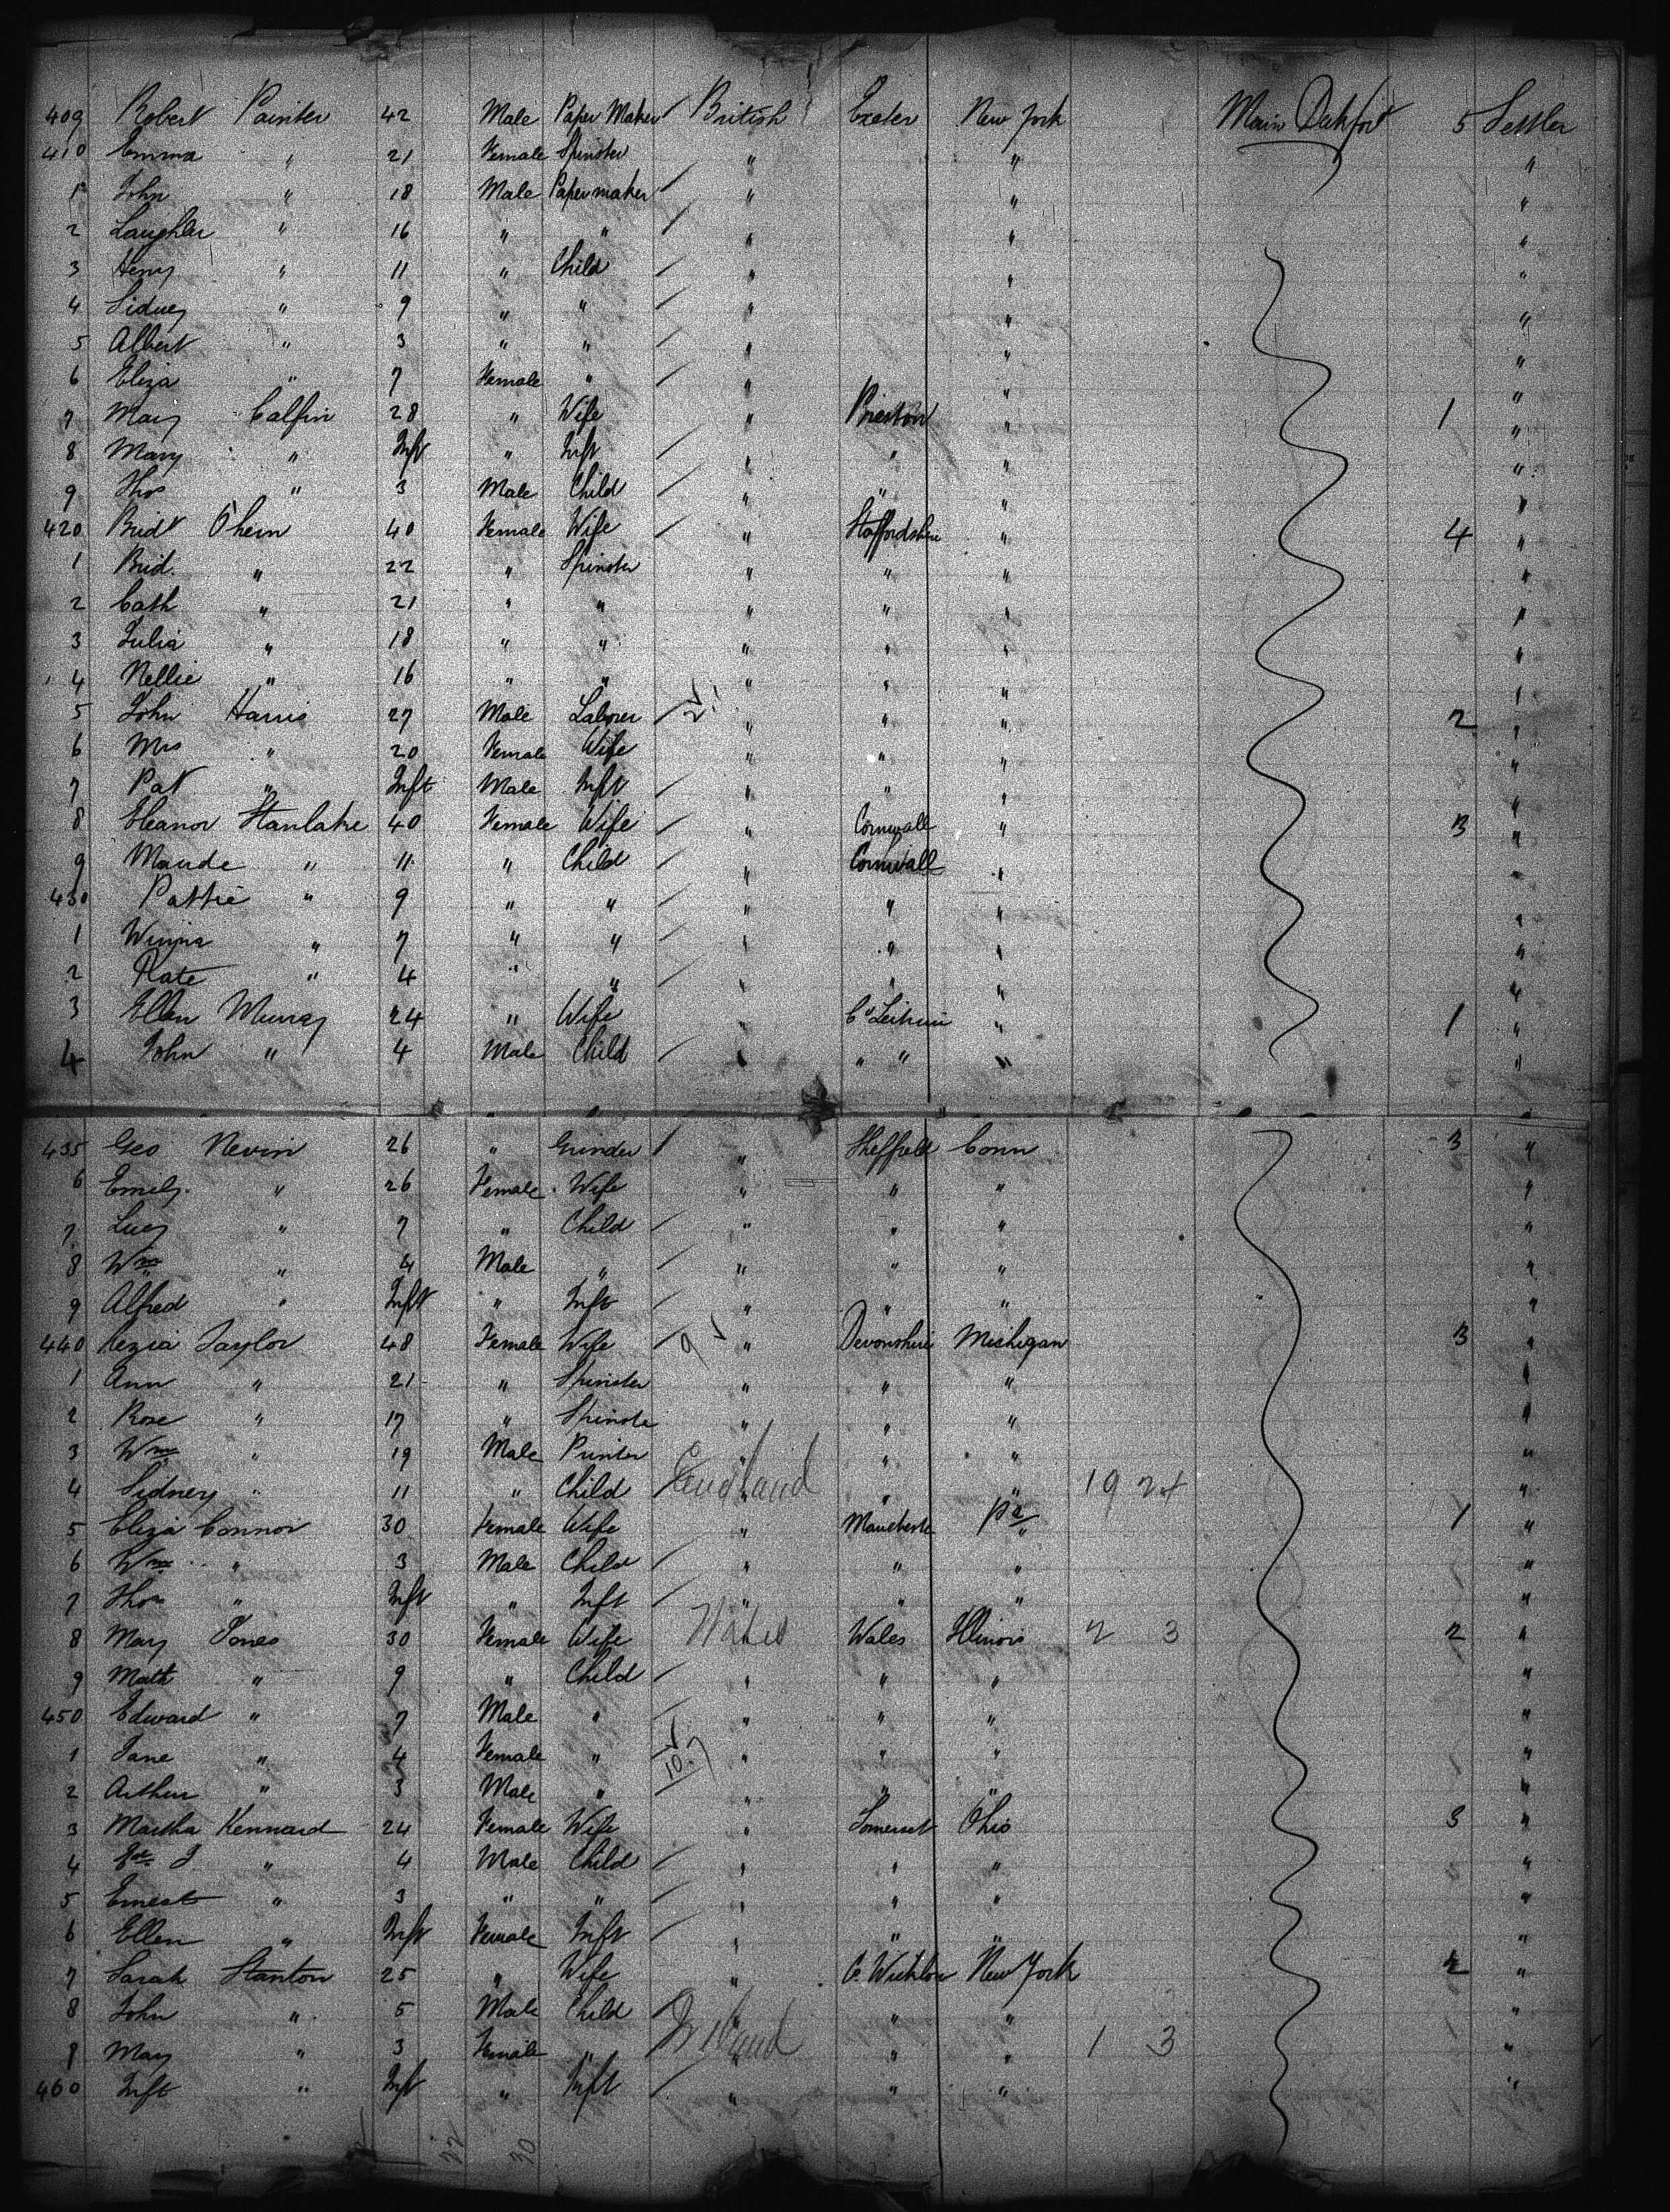 409 Robert Painter 42 Male Paper Maker British Exeter New York Main Deck for 5 Settler
410 Emma " 21 Female Spinster " " "
1 John " 18 Male Papermaker " " "
2 " 16 " " " " "
3 Henry " 11 " Child " " "
4 Sidney " 9 " " " " "
5 Albert " 3 " " " " "
6 Eliza " 7 Female " " " "
7 Mary Calfin 28 " Wife " Preston " 1 "
8 Mary " Inft " Inft " " " "
9 Thos " 3 Male Child " " " "
420 Brid Ohern 40 Female Wife " Staffordshire " 4 "
1 Brid. " 22 " Spinster " " " "
2 Cath " 21 " " " " " "
3 Julia " 18 " " " " " "
4 Nellie " 16 " " " " " "
5 John Harris 27 Male Laborer 2 " " " 2 "
6 Mrs " 20 Female Wife " " " "
7 Pat " Inft Male Inft " " " "
8 Eleanor Stanlake 40 Female Wife " Cornwall " 3 "
9 Maude " 11 " Child " Cornwall " "
430 Pattie " 9 " " " " " "
1 " 7 " " " " " "
2 Kate " 4 " " " " " "
3 Ellen Murray 24 " Wife " Co Leitrim " 1 "
4 John " 4 Male Child " " " " "
435 Geo Nevin 26 " Grinder " Sheffield Conn 3 "
6 Emely " 26 Female Wife " " " "
7 Lucy " 7 " Child " " " "
8 Wm " 4 Male " " " " "
9 Alfred " Inft " Inft " " " "
440 Kezia Taylor 48 Female Wife 9 " Devonshire Michigan 3 "
1 Ann " 21 " Spinster " " " "
2 Rose " 17 " Spinster " " " "
3 Wm " 19 Male Printer " " " "
4 Sidney " 11 " Child England " " " 19 24 "
5 Eliza Connor 30 Female Wife " Manchester Pa " 1 "
6 Wm " 3 Male Child " " " "
7 Thos " Inft " Inft " " " "
8 Mary Jones 30 Female Wife Wales Wales Illinois 2 3 2 "
9 Math " 9 " Child " " " "
450 Edward " 7 Male " " " " "
1 Jane " 4 Female " 10 " " " "
2 Arthur " 3 Male " " " " "
3 Martha Kennard 24 Female Wife " Somerset Ohio 3 "
4 J " 4 Male Child " " " "
5 Ernest " 3 " " " " " "
6 Ellen " Inft Female Inft " " " "
7 Sarah Stanton 25 " Wife " Co Wicklow New York 2 "
8 John " 5 Male Child " " " "
9 Mary " 3 Female " Ireland " " " 1 3 "
460 Inft " Inft " Inft " " " "
22 30